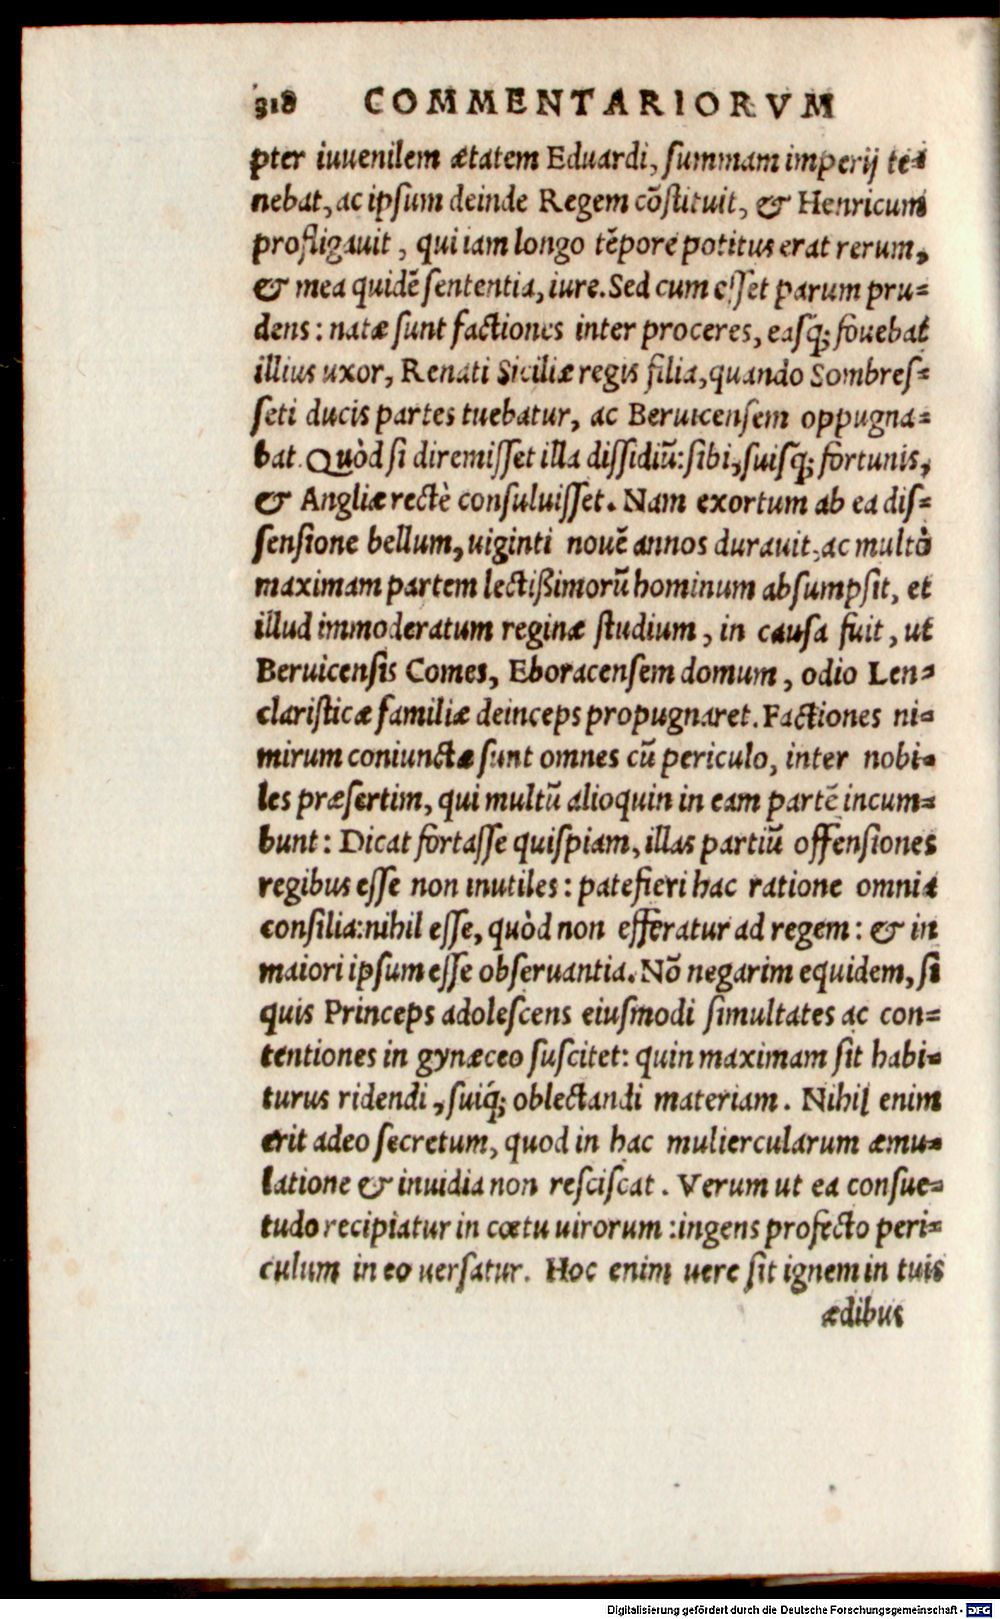 318 COMMENTARIORVM
pter iuuenilem ætatem Eduardi, summam imperij te=
nebat, ac ipsum deinde Regem cõstituit, & Henricum
profligauit, qui iam longo tẽpore potitus erat rerum,
& mea quidẽ sententia, iure. Sed cum esset parum pru=
dens: natæ sunt factiones inter proceres, easq́; fouebat
illius uxor, Renati Siciliæ regis filia, quando Sombres=
seti ducis partes tuebatur, ac Beruicensem oppugna=
bat. Quòd si diremisset illa dissidiũ: sibi, suisq́; fortunis,
& Angliæ rectè consuluisset. Nam exortum ab ea dis=
sensione bellum, uiginti nouẽ annos durauit, ac multò
maximam partem lectißimorũ hominum absumpsit, et
illud immoderatum reginæ studium, in causa fuit, ut
Beruicensis Comes, Eboracensem domum, odio Len=
claristicæ familiæ deinceps propugnaret. Factiones ni=
mirum coniunctæ sunt omnes cũ periculo, inter nobi=
les præsertim, qui multũ alioquin in eam partẽ incum=
bunt: Dicat fortasse quispiam, illas partiũ offensiones
regibus esse non inutiles: patefieri hac ratione omnia
consilia: nihil esse, quòd non efferatur ad regem: & in
maiori ipsum esse obseruantia. Nõ negarim equidem, si
quis Princeps adolescens eiusmodi simultates ac con=
tentiones in gynæceo suscitet: quin maximam sit habi=
turus ridendi, suiq́; oblectandi materiam. Nihil enim
erit adeo secretum, quod in hac muliercularum æmu=
latione & inuidia non resciscat. Verum ut ea consue=
tudo recipiatur in cœtu uirorum: ingens profecto peri=
culum in eo uersatur. Hoc enim uere sit ignem in tuis
ædibus
Digitalisierung gefördert durch die Deutsche Forschungsgemeinschaft - DFG